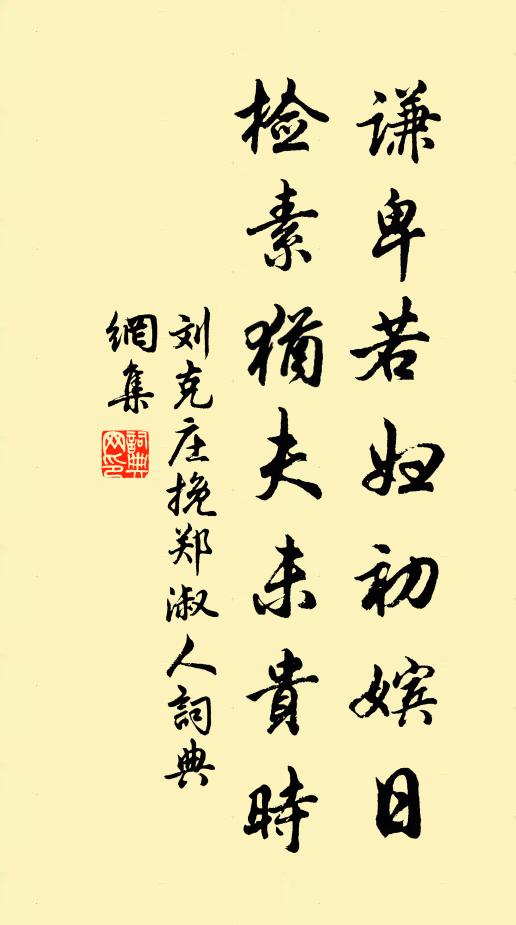 谦卑若妇初嫔日
检素犹夫未貴時
刘克庄挽郑淑人詞典
網集
詞典
网印